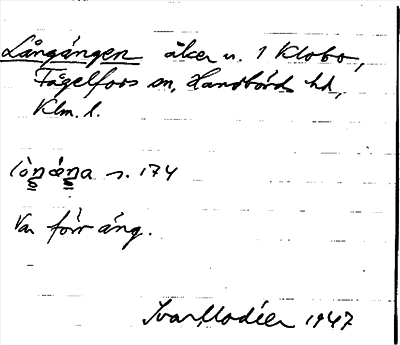 Långängen åker u. 1 Klobo,
Fågelfors sn, Handbörds hd,
Klm. l.
s. 174
Var förr äng.
Ivar Modéer 1947